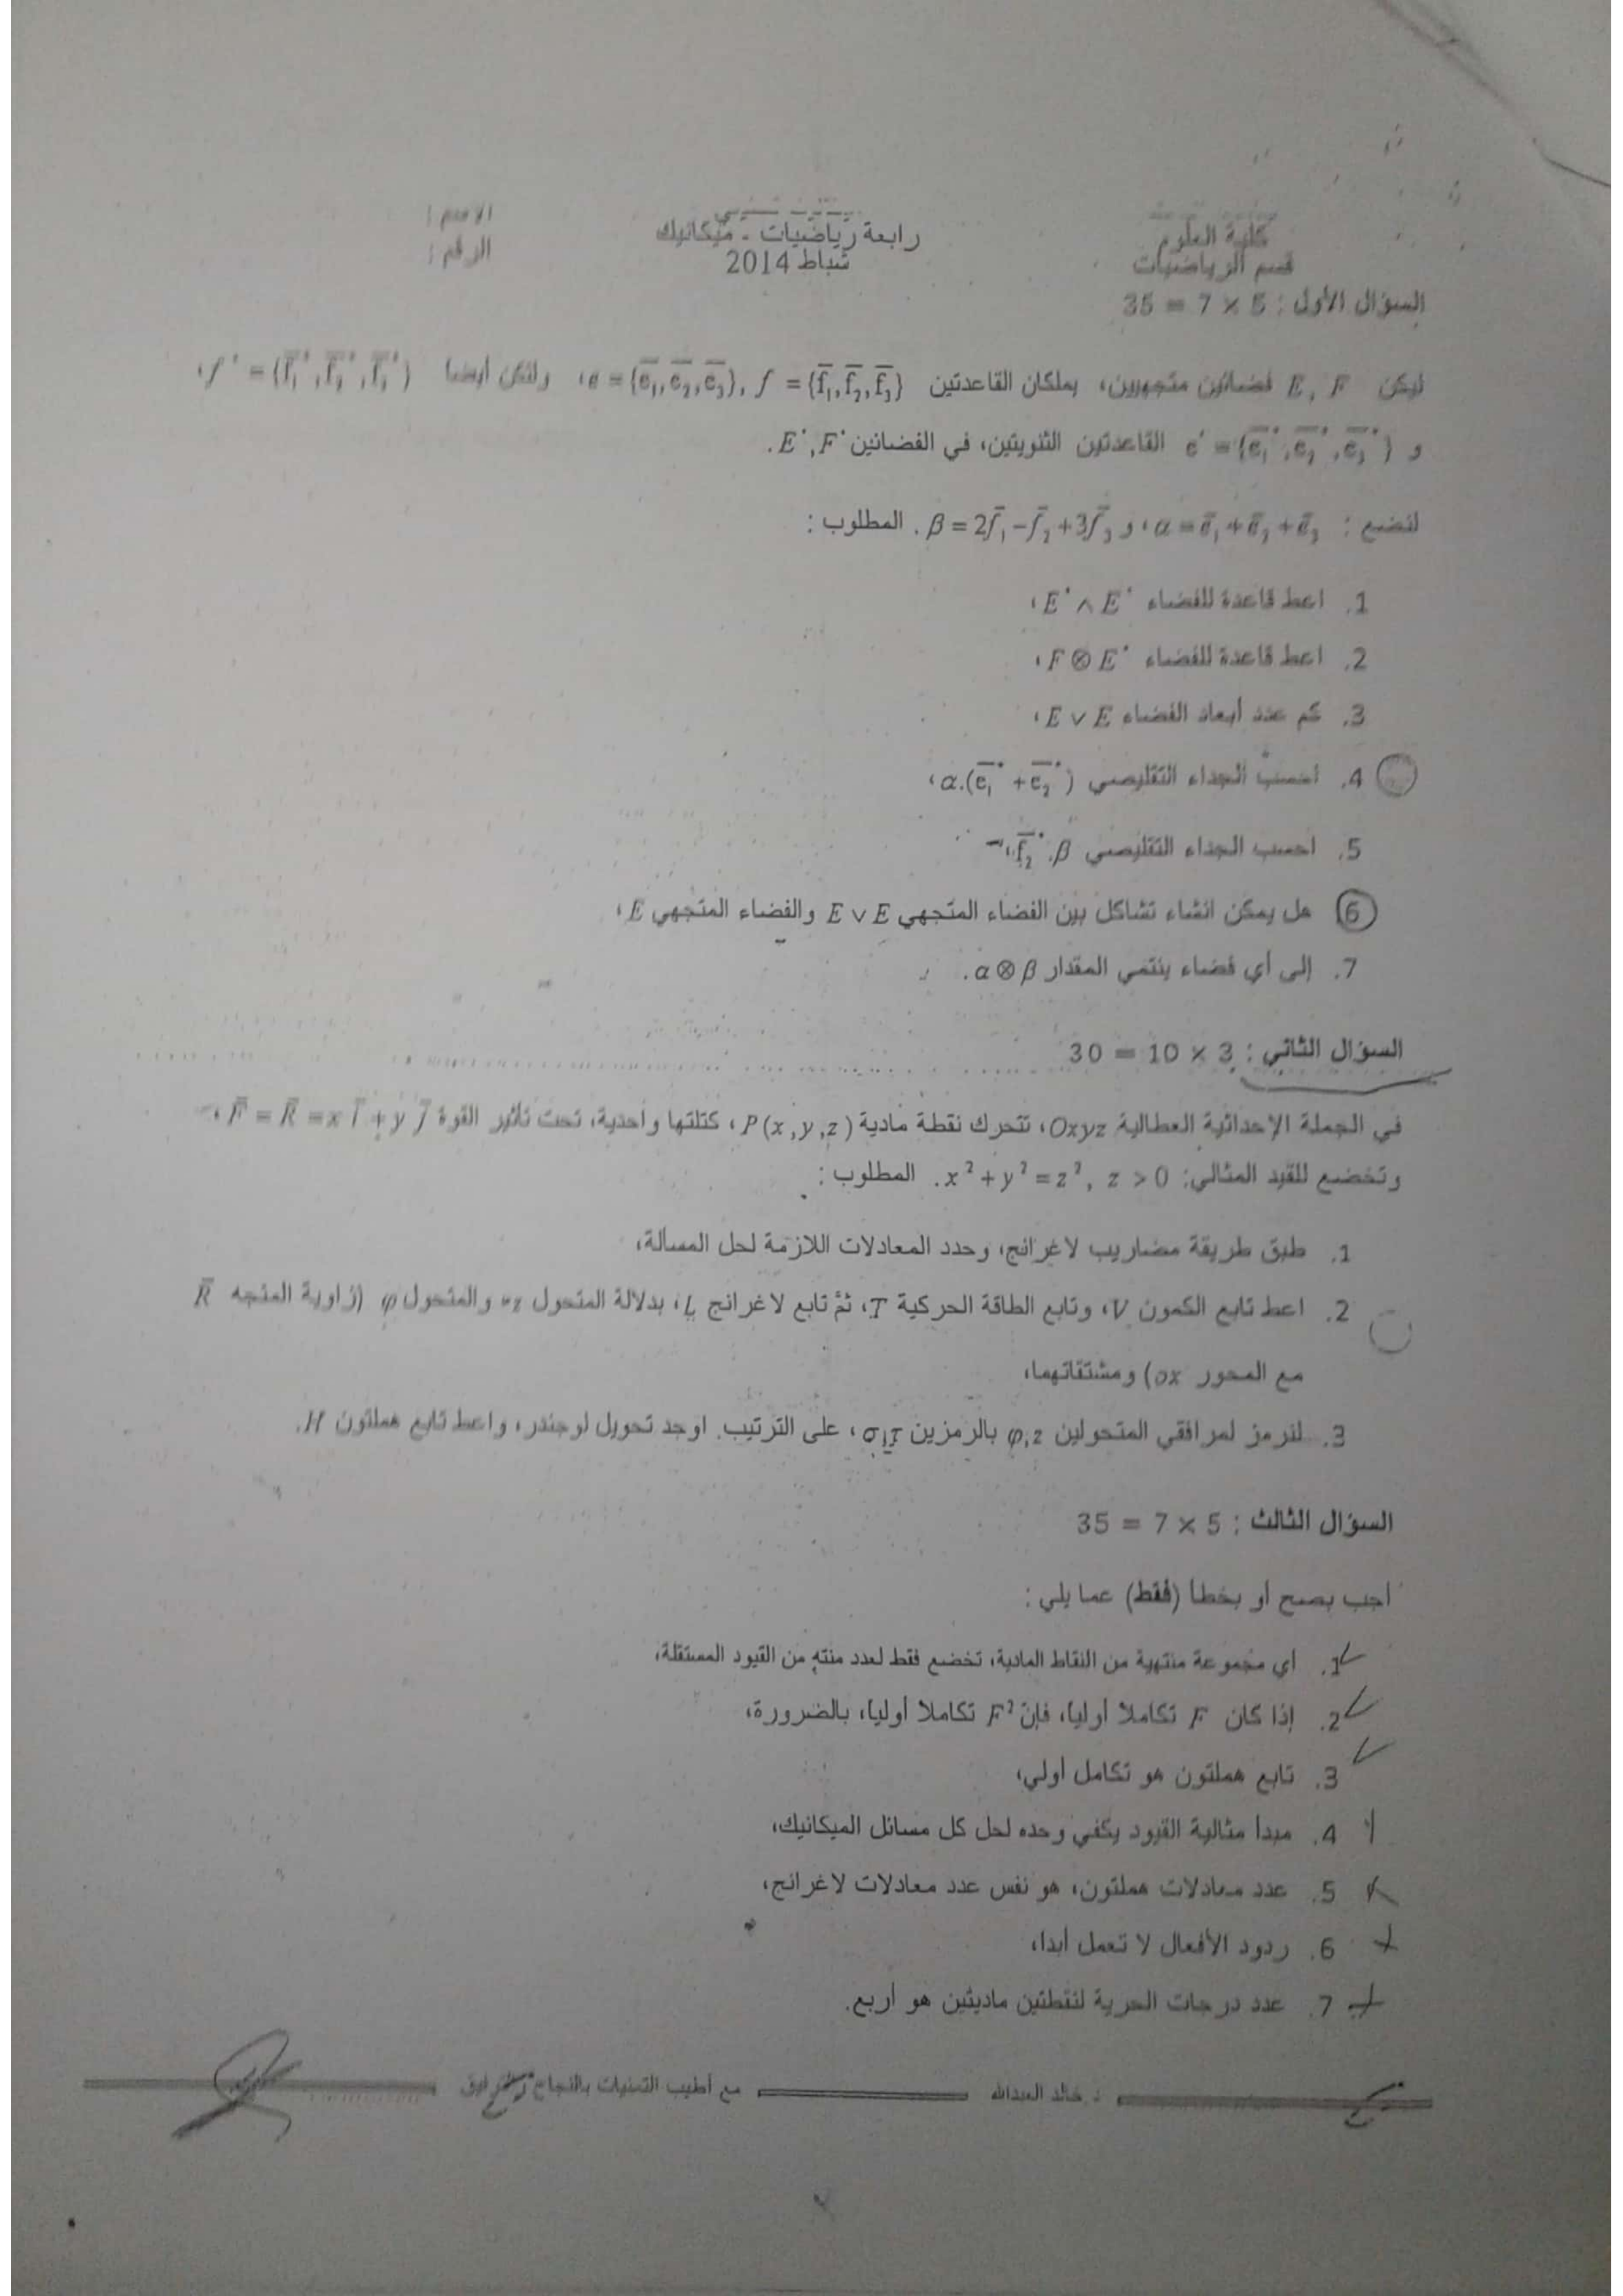 كلية العلوم
قسم الرياضيات
رابعة رياضيات - ميكانيك
شباط 2014
الاسم :
الرقم :
السؤال الأول : 5 × 7 = 35
ليكن E, F فضائين متجهيين، يملكان القاعدتين e = {e̅₁, e̅₂, e̅₃}, f = {f̅₁, f̅₂, f̅₃}، ولتكن أيضا f* = {f̅₁*, f̅₂*, f̅₃*}،
و e* = {e̅₁*, e̅₂*, e̅₃*} القاعدتين الثنويتين، في الفضائين E*, F*.
لنضع : α = e̅₁ + e̅₂ + e̅₃، و β = 2f̅₁ − f̅₂ + 3f̅₃. المطلوب :
1. اعط قاعدة للفضاء E* ∧ E*،
2. اعط قاعدة للفضاء F ⊗ E*،
3. كم عدد أبعاد الفضاء E ∨ E،
4. احسب الجداء التقليصي α.(e̅₁* + e̅₂*)،
5. احسب الجداء التقليصي f̅₂*.β،
6. هل يمكن انشاء تشاكل بين الفضاء المتجهي E ∨ E والفضاء المتجهي E،
7. إلى أي فضاء ينتمي المقدار α ⊗ β.
السؤال الثاني : 3 × 10 = 30
في الجملة الإحداثية العطالية Oxyz، تتحرك نقطة مادية P(x, y, z)، كتلتها واحدية، تحت تأثير القوة F̅ = R̅ = x i̅ + y j̅،
وتخضع للقيد المثالي: x² + y² = z², z > 0. المطلوب :
1. طبق طريقة مضاريب لاغرانج، وحدد المعادلات اللازمة لحل المسألة،
2. اعط تابع الكمون V، وتابع الطاقة الحركية T، ثمّ تابع لاغرانج L، بدلالة المتحول z، والمتحول φ (زاوية المتجه R̅
مع المحور ox) ومشتقاتهما،
3. لنرمز لمرافقي المتحولين φ, z بالرمزين σ, τ، على الترتيب. اوجد تحويل لوجندر، واعط تابع هملتون H.
السؤال الثالث : 5 × 7 = 35
أجب بصح أو بخطأ (فقط) عما يلي :
1. أي مجموعة منتهية من النقاط المادية، تخضع فقط لعدد منتهٍ من القيود المستقلة،
2. إذا كان F تكاملا أوليا، فإن F² تكاملا أوليا، بالضرورة،
3. تابع هملتون هو تكامل أولي،
4. مبدأ مثالية القيود يكفي وحده لحل كل مسائل الميكانيك،
5. عدد معادلات هملتون، هو نفس عدد معادلات لاغرانج،
6. ردود الأفعال لا تعمل أبدا،
7. عدد درجات الحرية لنقطتين ماديتين هو أربع.
د. خالد العبدالله
مع أطيب التمنيات بالنجاح